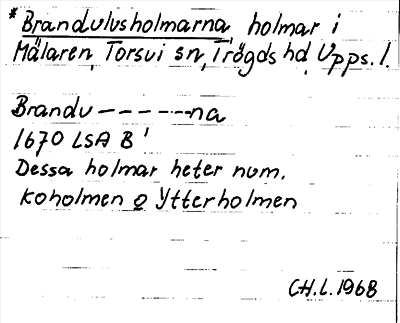 *Brandulvsholmarna, holmar i
Mälaren, Torsvi sn, Trögds hd, Upps. l.
Brandu------na
1670 LSA B'
Dessa holmar heter num.
Koholmen o Ytterholmen
CH.L. 1968